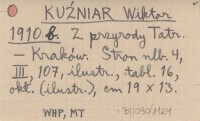 KUŹNIAR Wiktor
1910 b. Z przyrody Tatr.
— Kraków. Stron nlb. 4,
III, 107, ilustr., tabl. 16,
okł. (ilustr.), cm 19 × 13.
WHP, MT